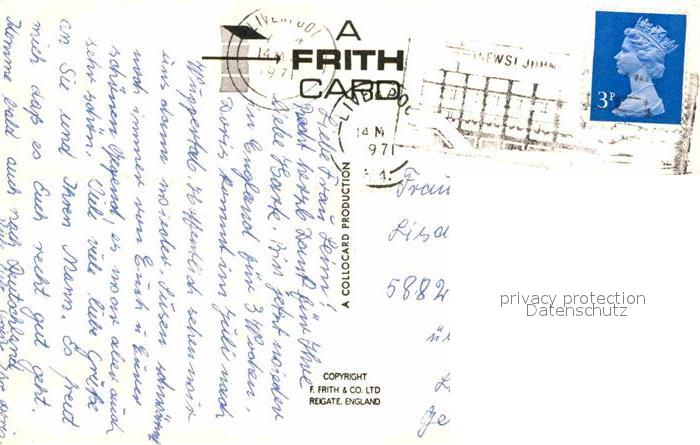 A
FRITH
CARD
LIVERPOOL
14 M
1971
LIVERPOOL
14 M
1971
NEW ST JOHN
3P
Liebe Frau Lenn!
Recht herzl. Dank für Ihre
liebe Karte. Bin jetzt wieder
in England für 3 Wochen.
Doris kommt im Juli nach
Wuppertal. Hoffentlich sehen wir
uns dann wieder. Susen schwärmt
noch immer von Euch u. Eurer
schönen Gegend, es war aber auch
sehr schön. Viele viele liebe Grüße
an Sie und Ihren Mann. Es freut
mich daß es Euch recht gut geht.
Komme bald auch nach Deutschland
A COLLOCARD PRODUCTION
Frau
Lisa
5882
COPYRIGHT
F. FRITH & CO. LTD
REIGATE, ENGLAND
privacy protection
Datenschutz